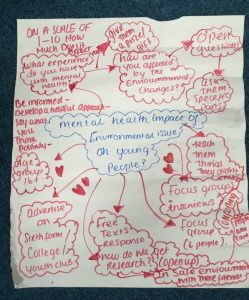 ON A SCALE OF
1-10 How
Much Do
What experience
do you have
with mental
health?
Give
Them
a prize/
gift
How are
you affected
by the
Environmental
Changes?
Open
questions
ask
Them
Specific
Be informed -
Develop a
approach -
Say what
you
Think
Mental health impact of
Environmental issue
on young
People?
Age
group
16+
Teach
them
Things
Focus group
Interviews
Focus
Group
(6 people)
advertise
on
Sixth form
College/
youth club
Free
Texts
Response
how do we Get
Research?
(open up)
in Safe environment
with There friends